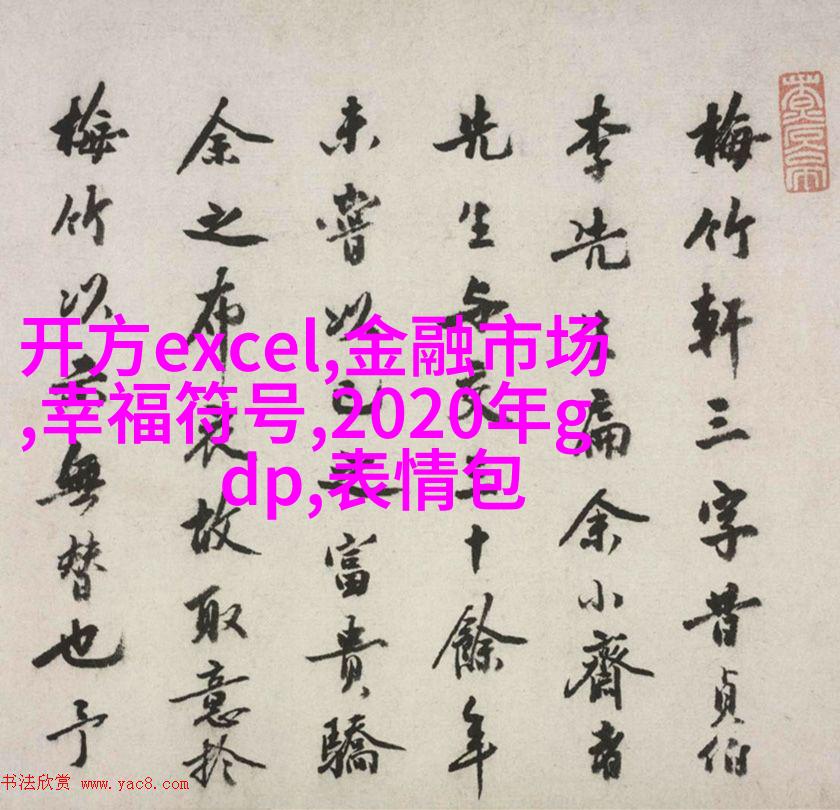 梅竹軒三字昔貞伯
李先扁余小齋者
先生与交三十餘年
未嘗以已富貴驕
余之布衣故取意於
梅竹以示無替也予
开方excel,金融市场
,幸福符号,2020年g
dp,表情包
书法欣赏 www.yac8.com